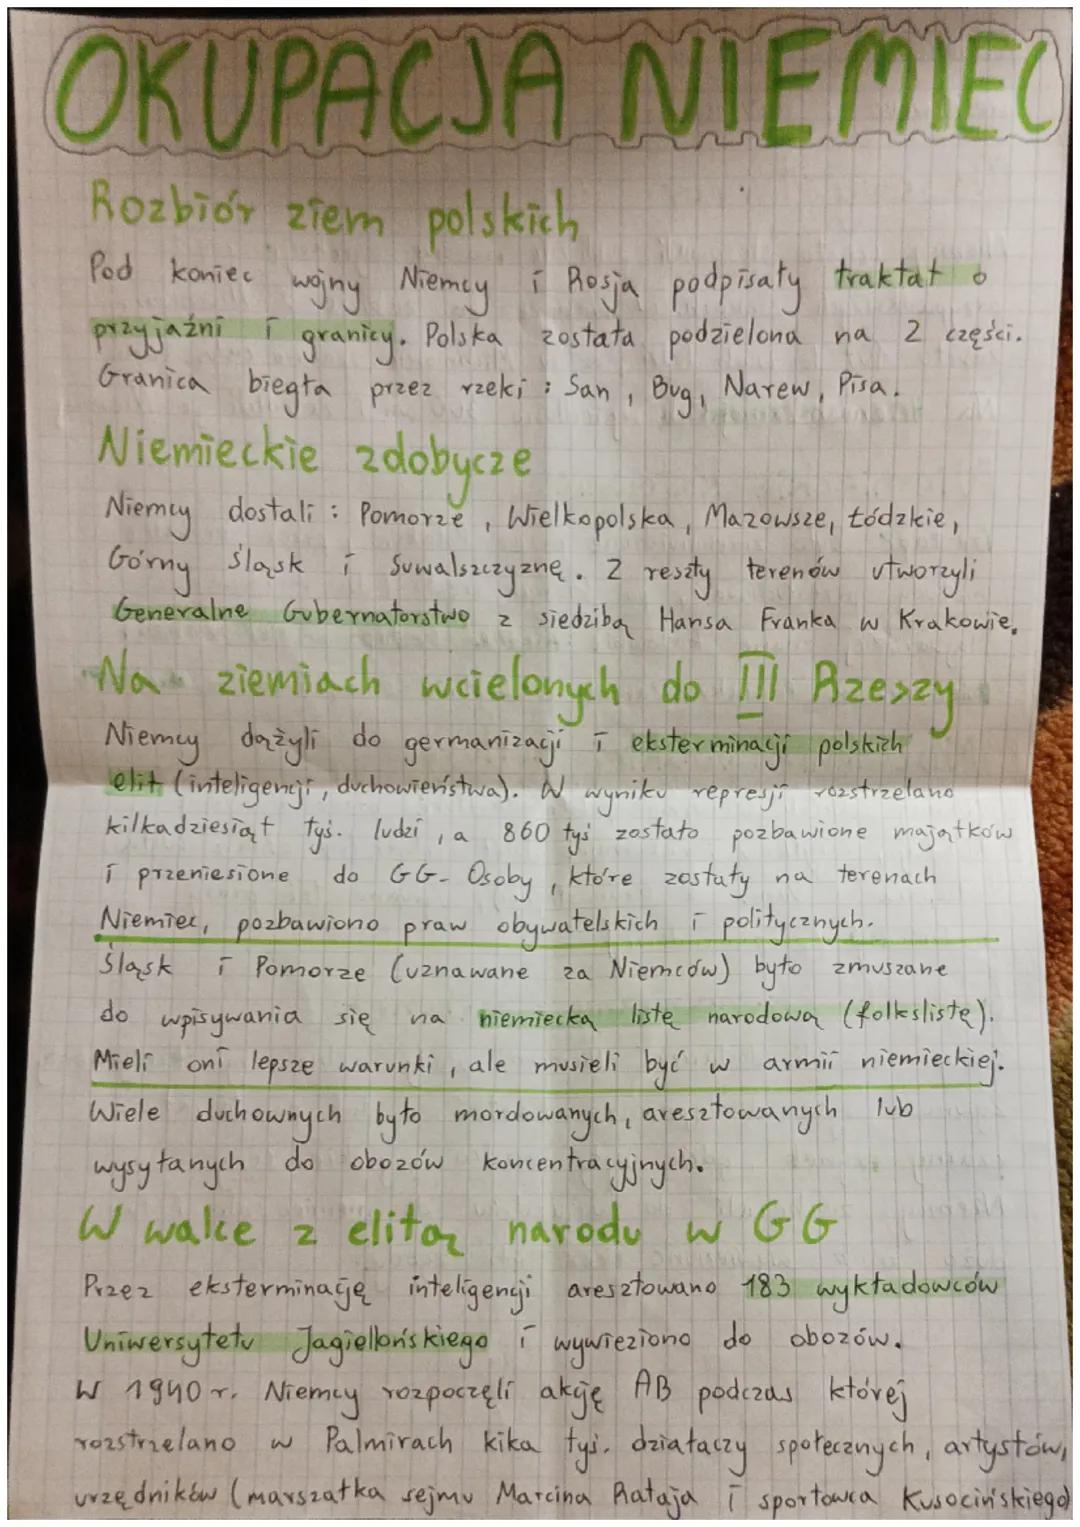 OKUPACJA NIEMIEC
Rozbiór ziem polskich
Pod koniec wojny Niemcy i Rosja podpisały traktat o
przyjaźni i granicy. Polska została podzielona na 2 części.
Granica biegła przez rzeki: San, Bug, Narew, Pisa.
Niemieckie zdobycze
Niemcy dostali: Pomorze, Wielkopolska, Mazowsze, Łódzkie,
Górny Śląsk i Suwalszczyznę. Z reszty terenów utworzyli
Generalne Gubernatorstwo z siedzibą Hansa Franka w Krakowie.
Na ziemiach wcielonych do III Rzeszy
Niemcy dążyli do germanizacji i eksterminacji polskich
elit (inteligencji, duchowieństwa). W wyniku represji rozstrzelano
kilkadziesiąt tyś. ludzi, a 860 tyś zostało pozbawione majątków
i przeniesione do GG- Osoby, które zostały na terenach
Niemiec, pozbawiono praw obywatelskich i politycznych.
Śląsk i Pomorze (uznawane za Niemców) było zmuszane
do wpisywania się na niemiecką listę narodową (folkslistę).
Mieli oni lepsze warunki, ale musieli być w armii niemieckiej.
Wiele duchownych było mordowanych, aresztowanych lub
wysyłanych do obozów koncentracyjnych.
W walce z elitą narodu w GG
Przez eksterminację inteligencji aresztowano 183 wykładowców
Uniwersytetu Jagiellońskiego i wywieziono do obozów.
W 1940 r. Niemcy rozpoczęli akcję AB podczas której
rozstrzelano w Palmirach kika tyś. działaczy społecznych, artystów,
urzędników (marszałka sejmu Marcina Rataja i sportowca Kusocińskiego)